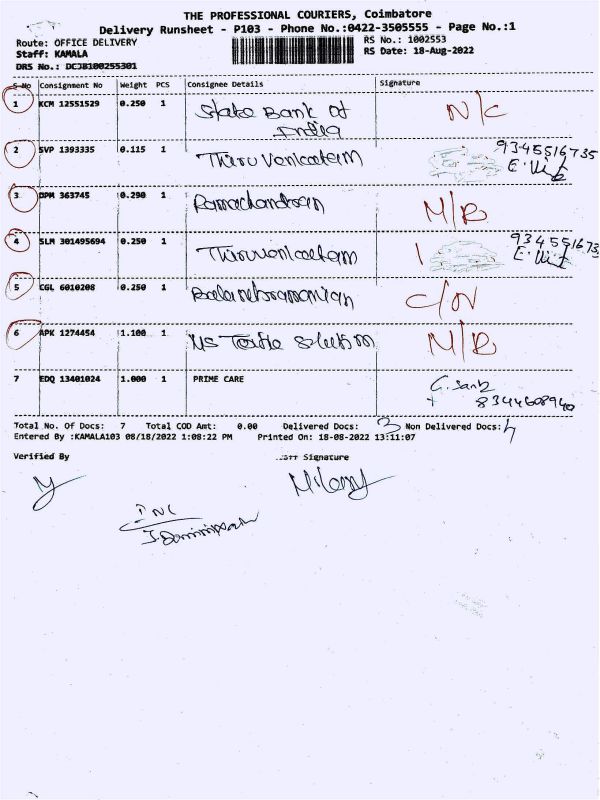 THE PROFESSIONAL COURIERS, Coimbatore
Delivery Runsheet - P103 - Phone No.:0422-3505555 - Page No.:1
Route: OFFICE DELIVERY
RS No.: 1002553
Staff: KAMALA
RS Date: 18-Aug-2022
DRS No.: DCJB100255301
S No Consignment No Weight PCS Consignee Details Signature
1 KCM 12551529 0.250 1 State Bank of India N/C
2 SVP 1393335 0.115 1 Thiru Venkatem 9345516735
3 DPM 363745 0.290 1 Ramachandran M/B
4 SLM 301495694 0.250 1 Thiruvenkatem
5 CGL 6010208 0.250 1
6 APK 1274454 1.100 1 M/B
7 EDQ 13401024 1.000 1 PRIME CARE
8344608940
Total No. Of Docs: 7 Total COD Amt: 0.00 Delivered Docs: 3 Non Delivered Docs: 4
Entered By :KAMALA103 08/18/2022 1:08:22 PM Printed On: 18-08-2022 13:11:07
Verified By Signature